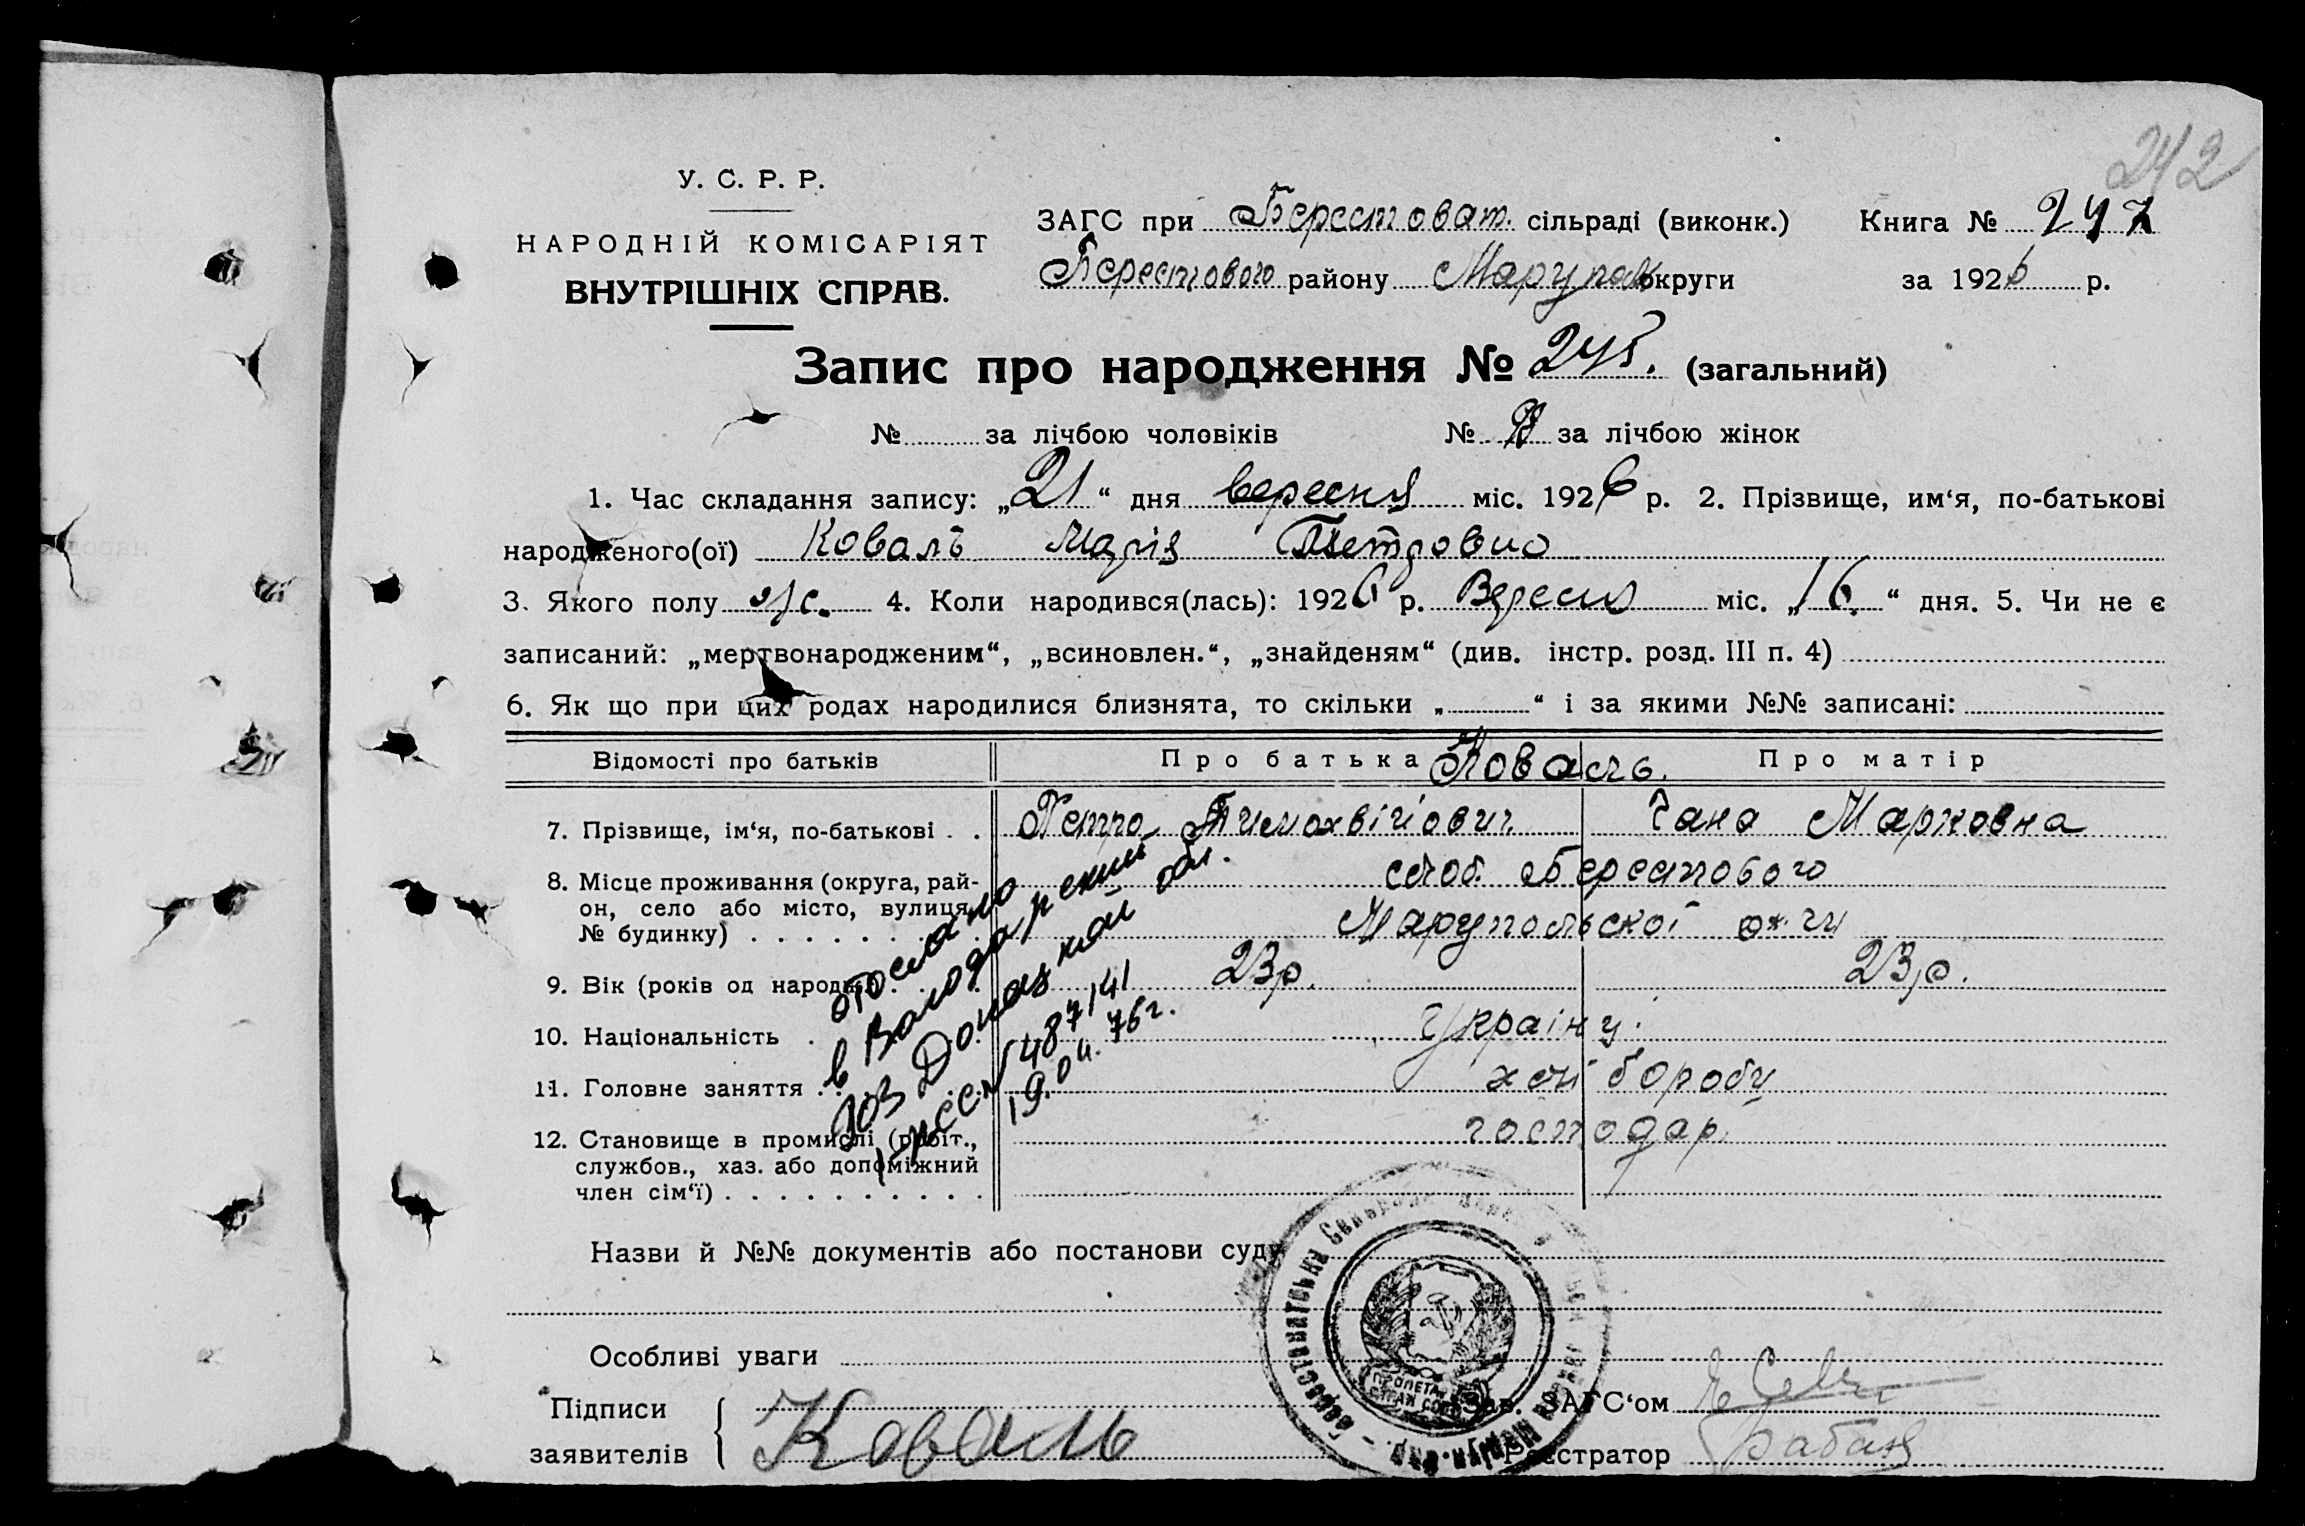 242
У. С. Р. Р.
НАРОДНІЙ КОМІСАРІЯТ
ВНУТРІШНІХ СПРАВ.
ЗАГС при Берестоват. сільраді (виконк.) Книга № 247
Берестового району Маруполь округи за 1926 р.
Запис про народження № 245. (загальний)
№ за лічбою чоловіків № за лічбою жінок
1. Час складання запису: „21“ дня вересня міс. 1926 р. 2. Прізвище, им‘я, по-батькові
народженого(ої) Коваль Марія Петровно
3. Якого полу ж. 4. Коли народився(лась): 1926 р. Вересня міс. „16.“ дня. 5. Чи не є
записаний: „мертвонародженим“, „всиновлен.“, „знайденям“ (див. інстр. розд. III п. 4)
6. Як що при цих родах народилися близнята, то скільки „ “ і за якими №№ записані:
Відомості про батьків Про батька Коваль. Про матір
7. Прізвище, ім‘я, по-батькові . . Петро Тимохвійович Гана Марковна
8. Місце проживання (округа, рай-
он, село або місто, вулиця,
№ будинку) . . . . . . . .
слоб. Берестового
Марупольскоі
9. Вік (років од народж.) 23р. 23р.
10. Національність . Україну.
11. Головне заняття . . хліборобу
12. Становище в промислі (робіт.,
службов., хаз. або допоміжний
член сім‘ї) . . . . . . . . . .
господар.
отослано
в Володарский
Донецкой обл.
487141
19.04.76г.
Назви й №№ документів або постанови суду
Особливі уваги
Підписи
заявителів
Коваль
Зав. ЗАГС‘ом
Реєстратор